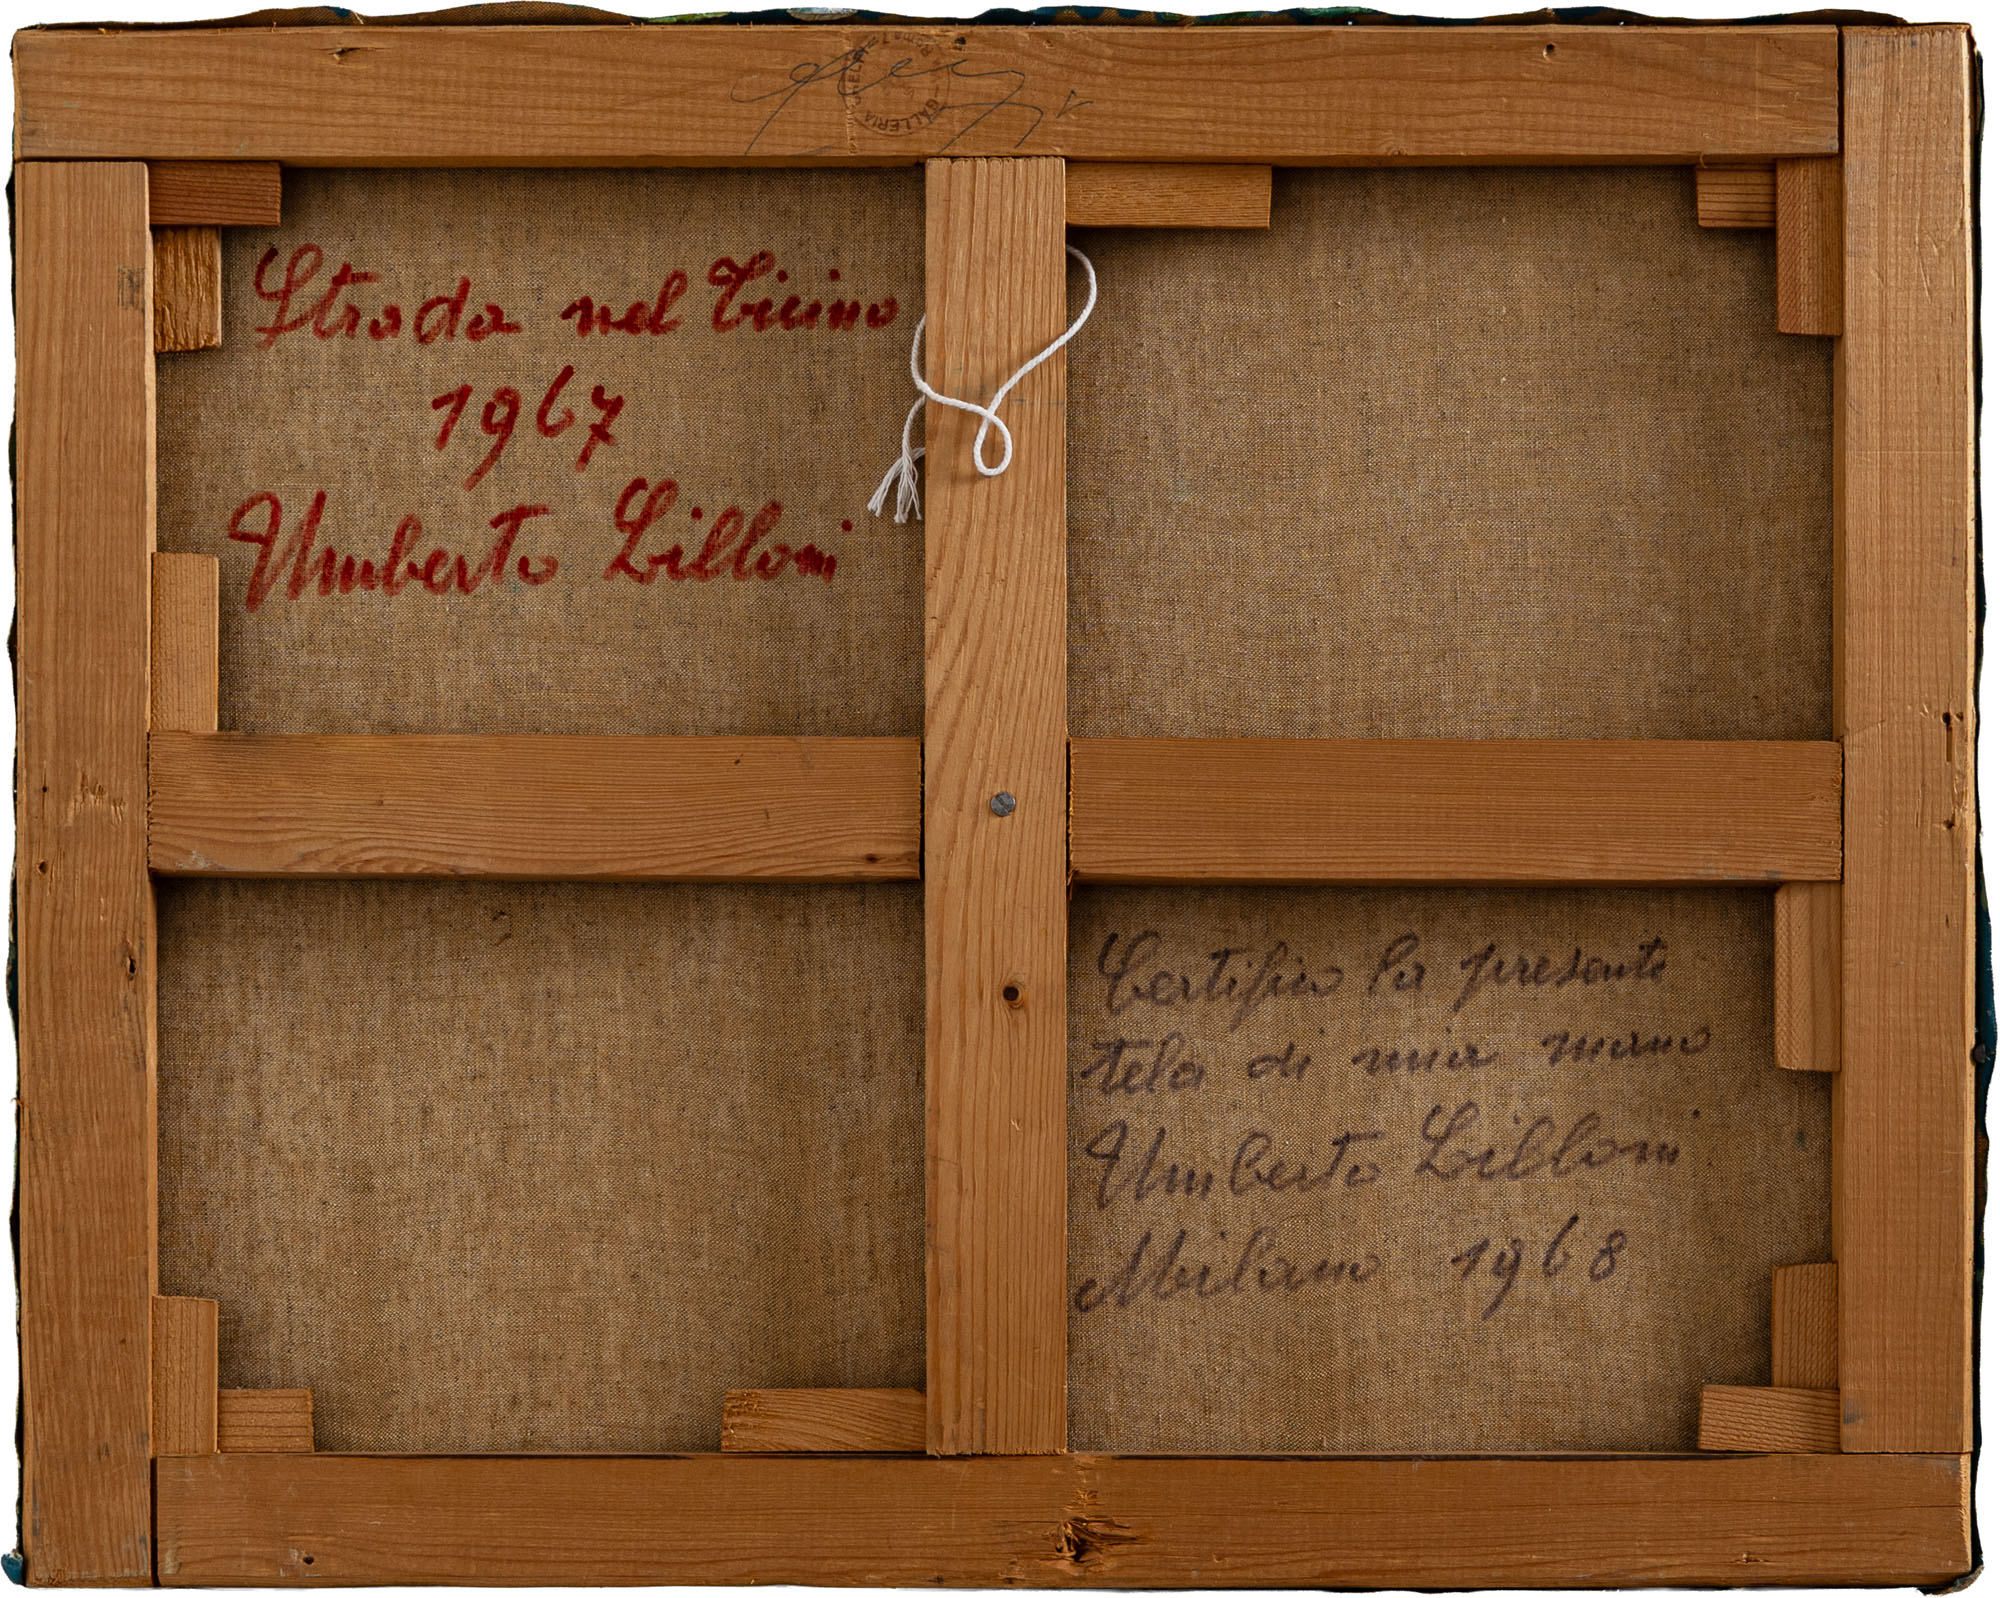 GALLERIA
Strada nel Ticino
1967
Umberto Lilloni
Certifico la presente
tela di mia mano
Umberto Lilloni
Milano 1968